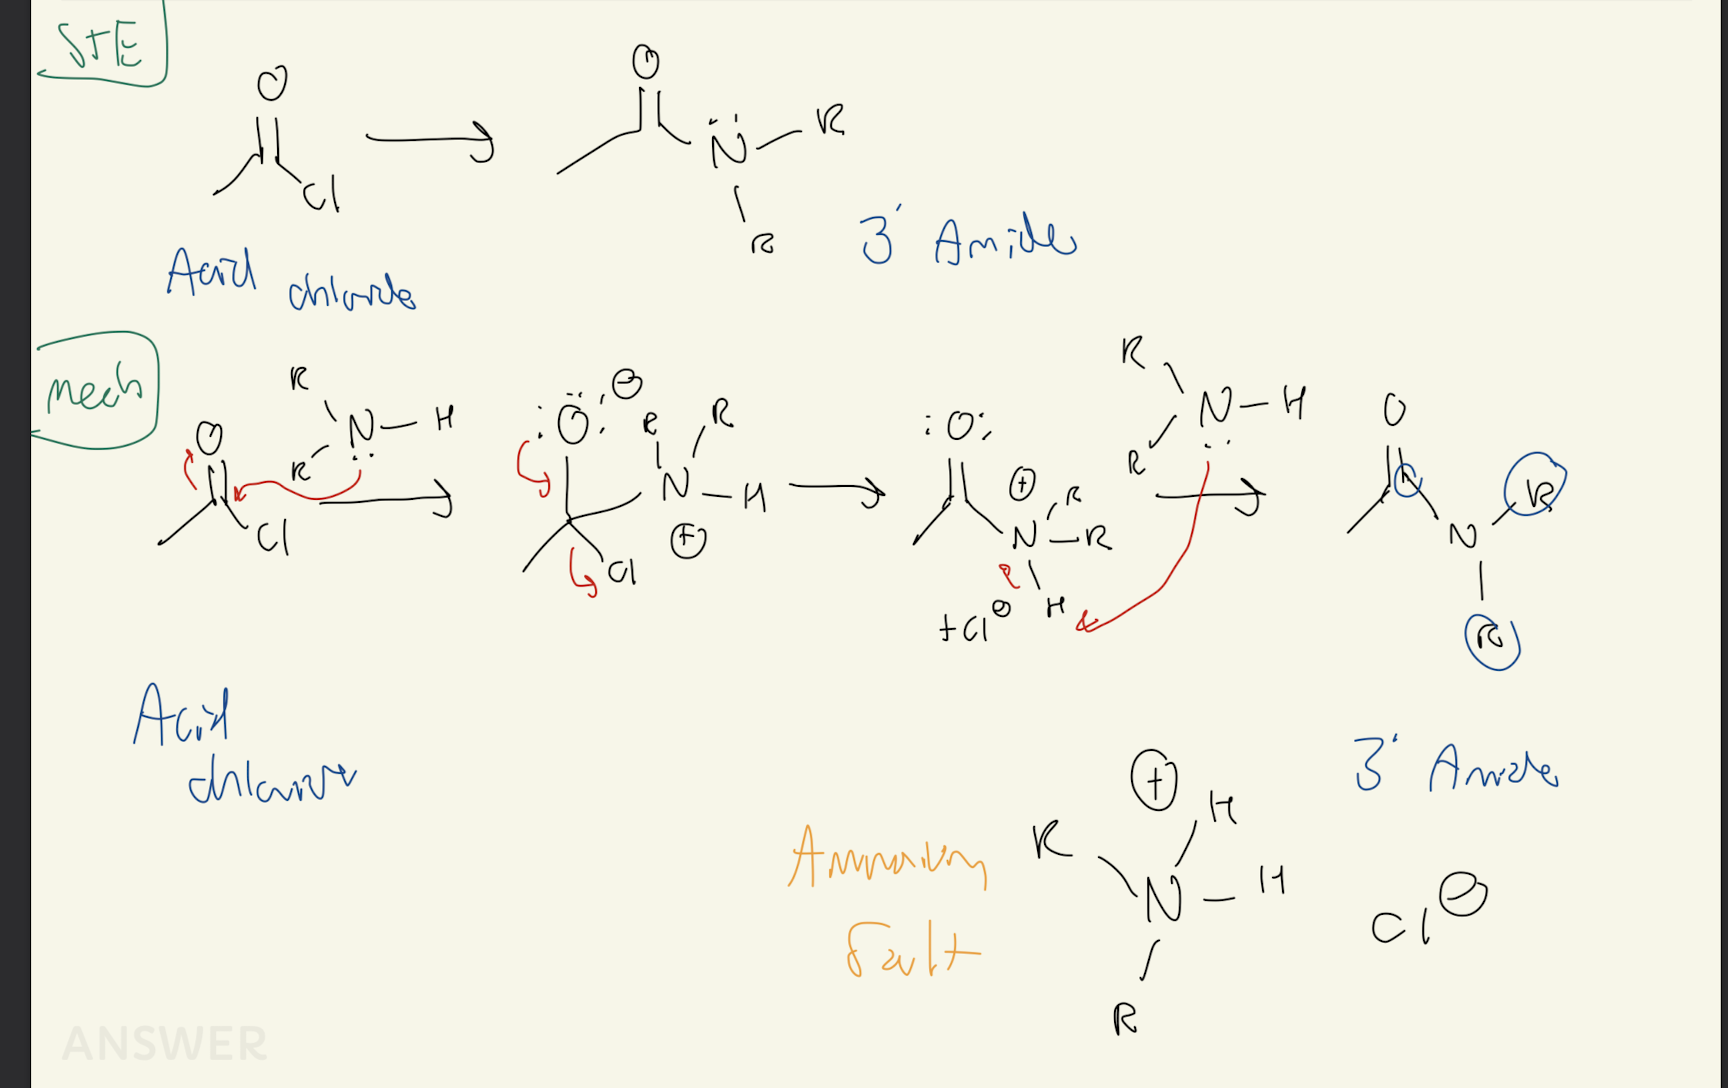 STE
O
O
Cl
N
R
R
Acid chloride
3° Amide
Mech
O
Cl
R
R
N
H
:O:
⊖
R
R
N
H
⊕
Cl
:O:
⊕
R
N
R
H
+Cl⊖
R
N
H
R
O
R
N
R
Acid
chloride
3° Amide
Ammonium
Salt
⊕
R
H
N
H
R
Cl⊖
ANSWER